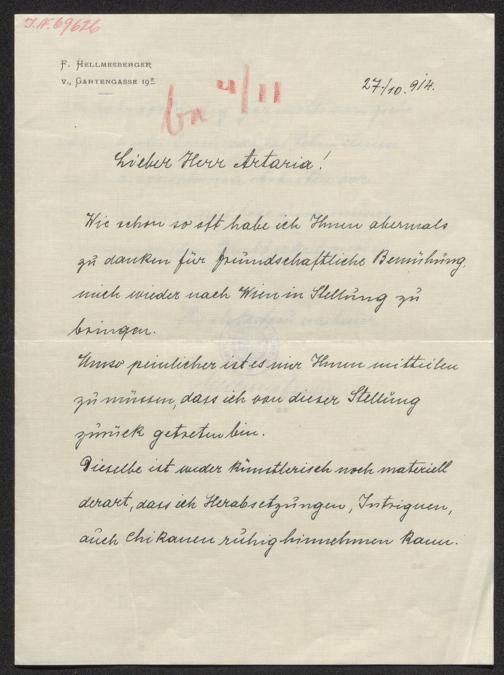 J.N. 69626
F. Hellmesberger
V., Gartengasse 19ª
27/10. 914.
ba 4/11
Lieber Herr Artaria!
Wie schon so oft habe ich Ihnen abermals
zu danken für freundschaftliche Bemühung,
mich wieder nach Wien in Stellung zu
bringen.
Umso peinlicher ist es mir Ihnen mitteilen
zu müssen, dass ich von dieser Stellung
zürück getreten bin.
Dieselbe ist weder künstlerisch noch materiell
derart, dass ich Herabsetzungen, Intriguen,
auch Chikanen ruhig hinnehmen kann.